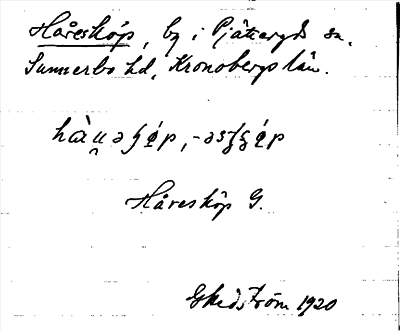 Håresköp, by i Pjätteryds sn,
Sunnerbo hd, Kronobergs län.
Håresköp G.
Ekedström 1920